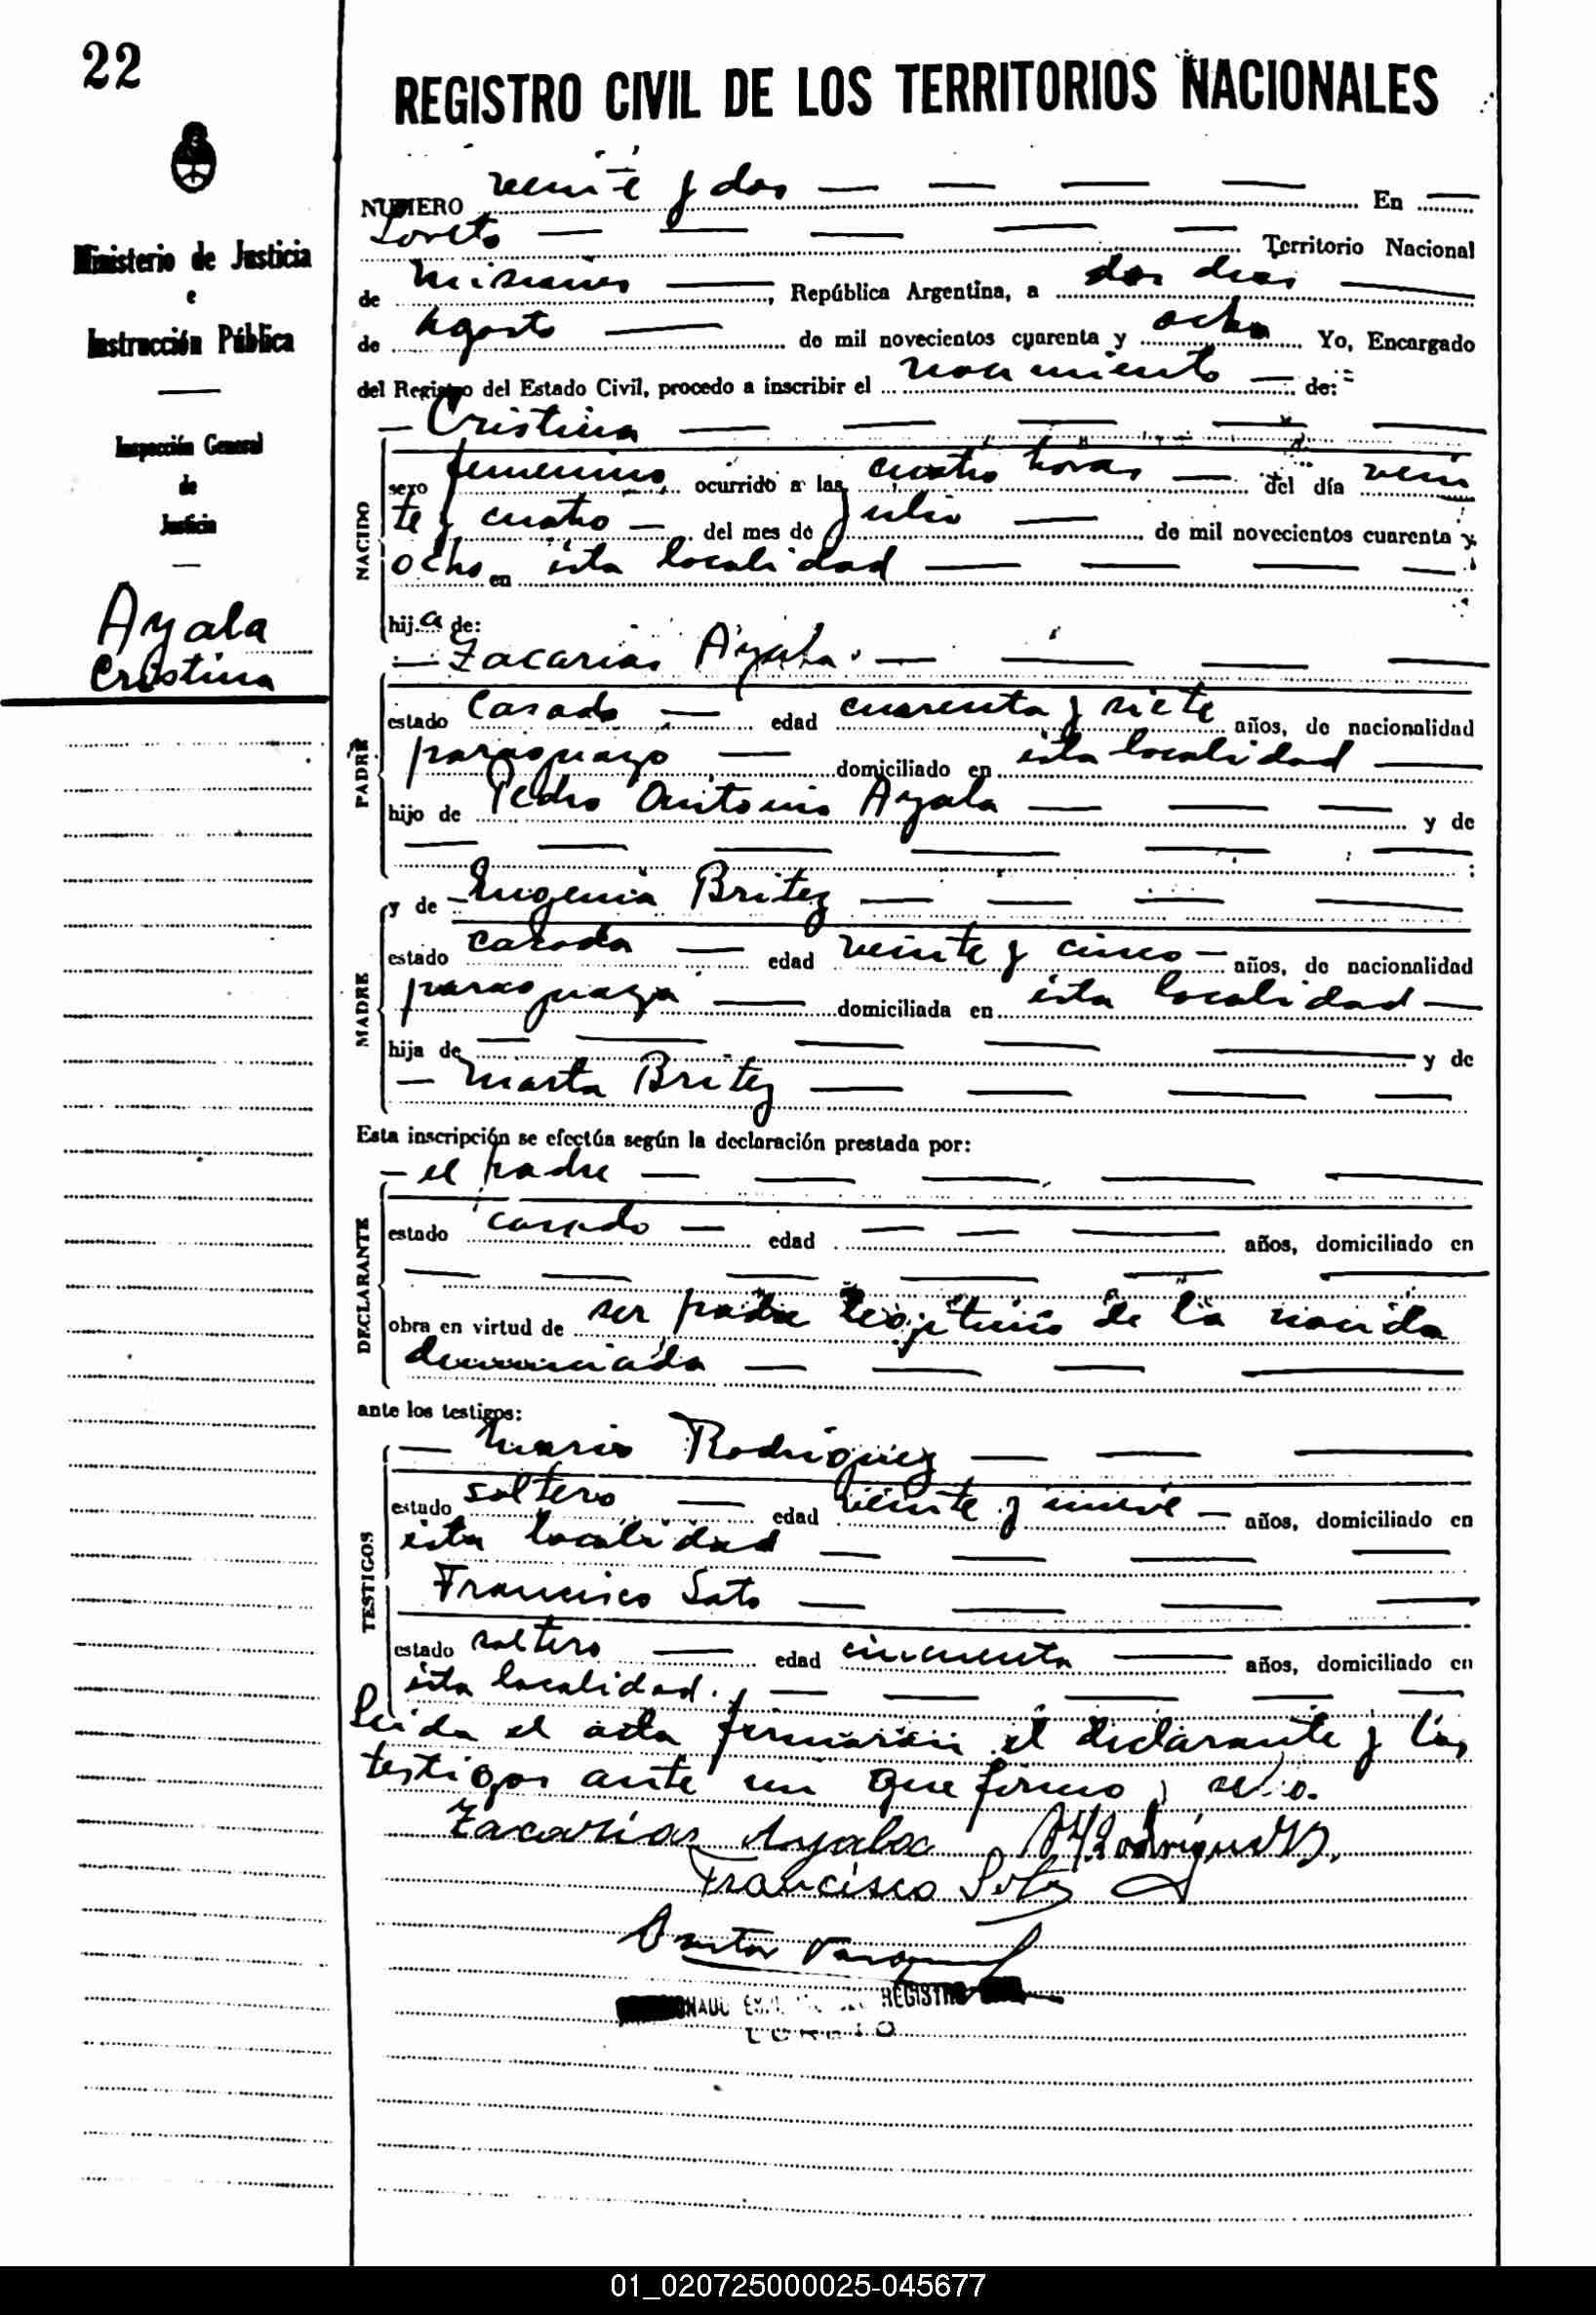 22
REGISTRO CIVIL DE LOS TERRITORIOS NACIONALES
Ministerio de Justicia
e
Instrucción Pública
Inspección General
de
Justicia
Ayala
Cristina
NUMERO veinte y dos — — — — En —
Loreto — — — — — Territorio Nacional
de Misiones —, República Argentina, a dos dias —
de Agosto — de mil novecientos cuarenta y ocho Yo, Encargado
del Registro del Estado Civil, procedo a inscribir el nacimiento — de:
— Cristina — — — — —
NACIDO
sexo femenino ocurrido a las cuatro horas — del día vein
te y cuatro — del mes de Julio — de mil novecientos cuarenta y
ocho en ésta localidad — — — —
hija de:
— Zacarias Ayala — — — —
PADRE
estado Casado — edad cuarenta y siete años, de nacionalidad
paraguayo — domiciliado en ésta localidad —
hijo de Pedro Antonio Ayala — — — y de
— — — — — —
MADRE
y de — Eugenia Britez — — — —
estado casada — edad veinte y cinco — años, de nacionalidad
paraguaya — domiciliada en ésta localidad —
hija de — — — — — y de
— Marta Britez — — — —
Esta inscripción se efectúa según la declaración prestada por:
— el padre — — — — —
DECLARANTE
estado casado — edad — — — años, domiciliado en
— — — — — —
obra en virtud de ser padre legitimo de la nacida
denunciada — — — —
ante los testigos:
TESTIGOS
— Mario Rodriguez — — —
estado soltero — edad veinte y nueve — años, domiciliado en
ésta localidad — — — —
Francisco Soto — — — —
estado soltero — edad cincuenta — años, domiciliado en
ésta localidad. — — — — —
Leida el acta firmarán el declarante y los
testigos ante mi que firmo y sello.
Zacarías Ayala M Rodríguez
Francisco Soto
REGISTRO
LORETO
01_020725000025-045677